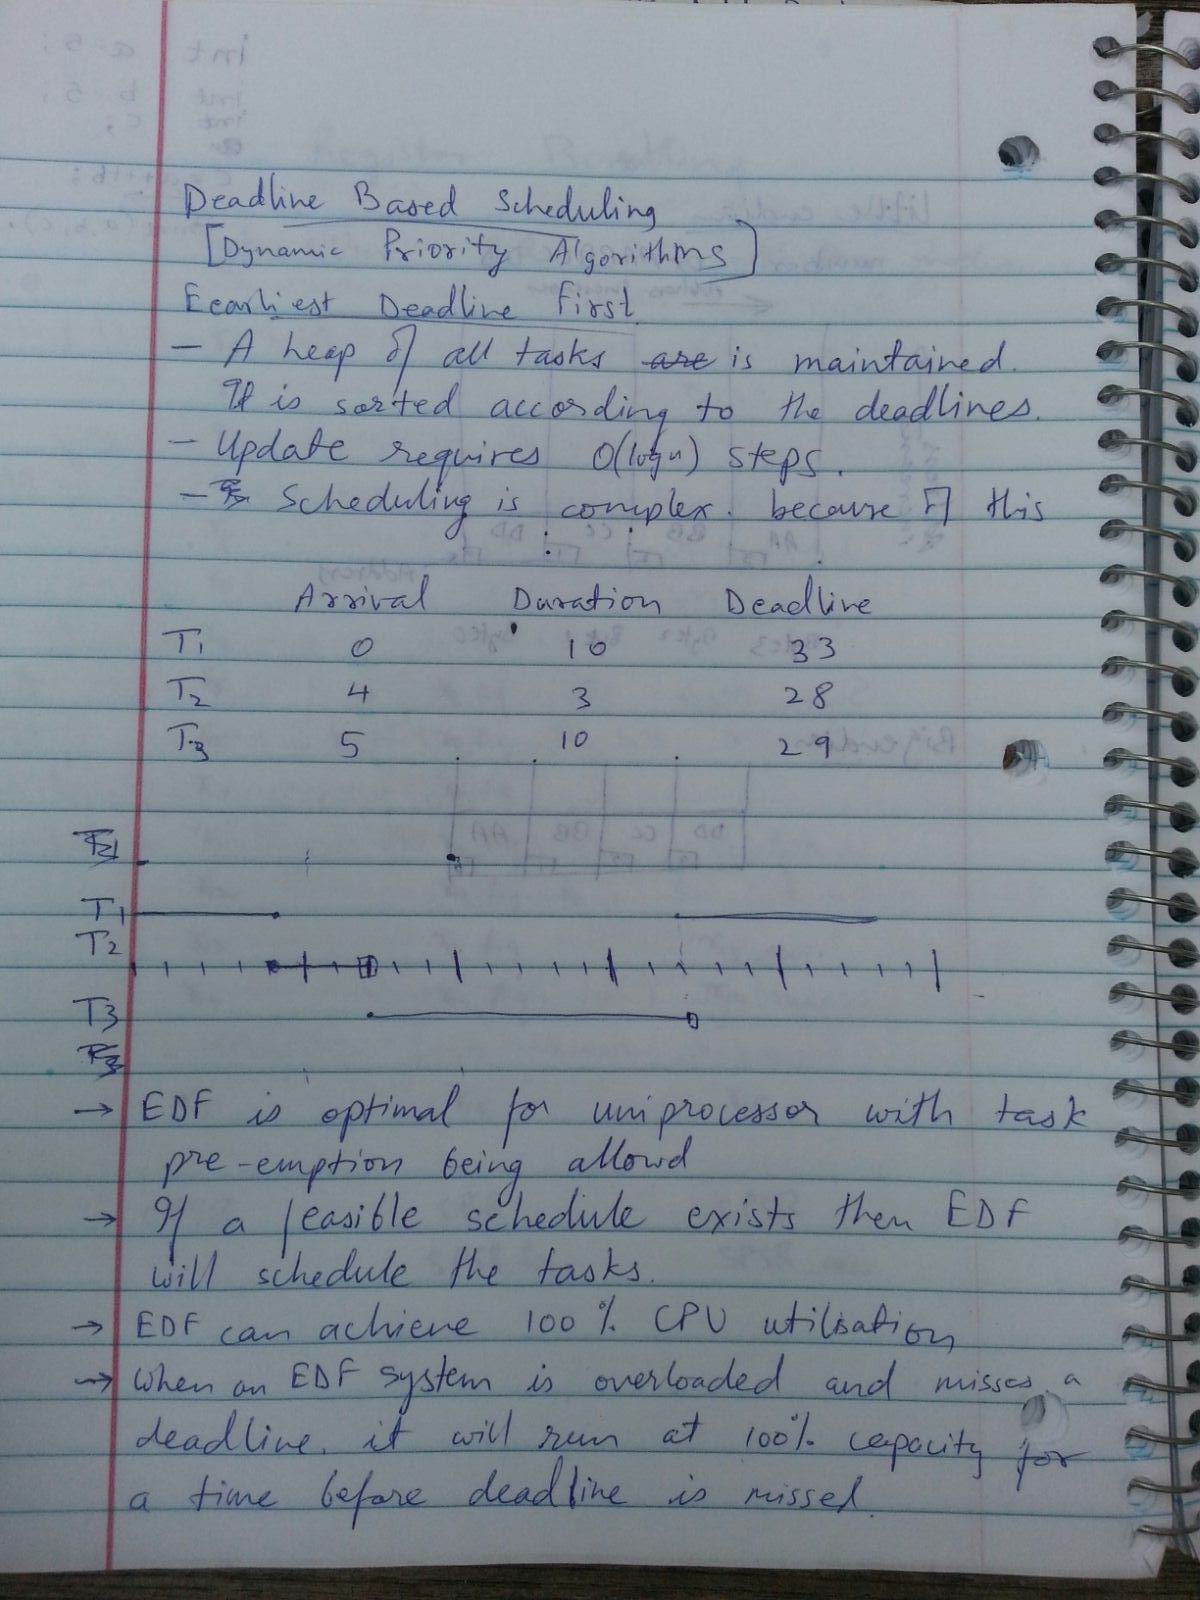 Deadline Based Scheduling
[Dynamic Priority Algorithms]
Eearliest Deadline First
- A heap of all tasks are is maintained.
It is sorted according to the deadlines.
- Update requires O(log n) steps.
- Scheduling is complex. because of this
Arrival Duration Deadline
T1 0 10 33
T2 4 3 28
T3 5 10 29
T1
T2
T3
→ EDF is optimal for uniprocessor with task
pre-emption being allowd
→ If a feasible schedule exists then EDF
will schedule the tasks.
→ EDF can achieve 100% CPU utilisation
→ When an EDF system is overloaded and misses a
deadline. it will run at 100% capacity for
a time before deadline is missed.